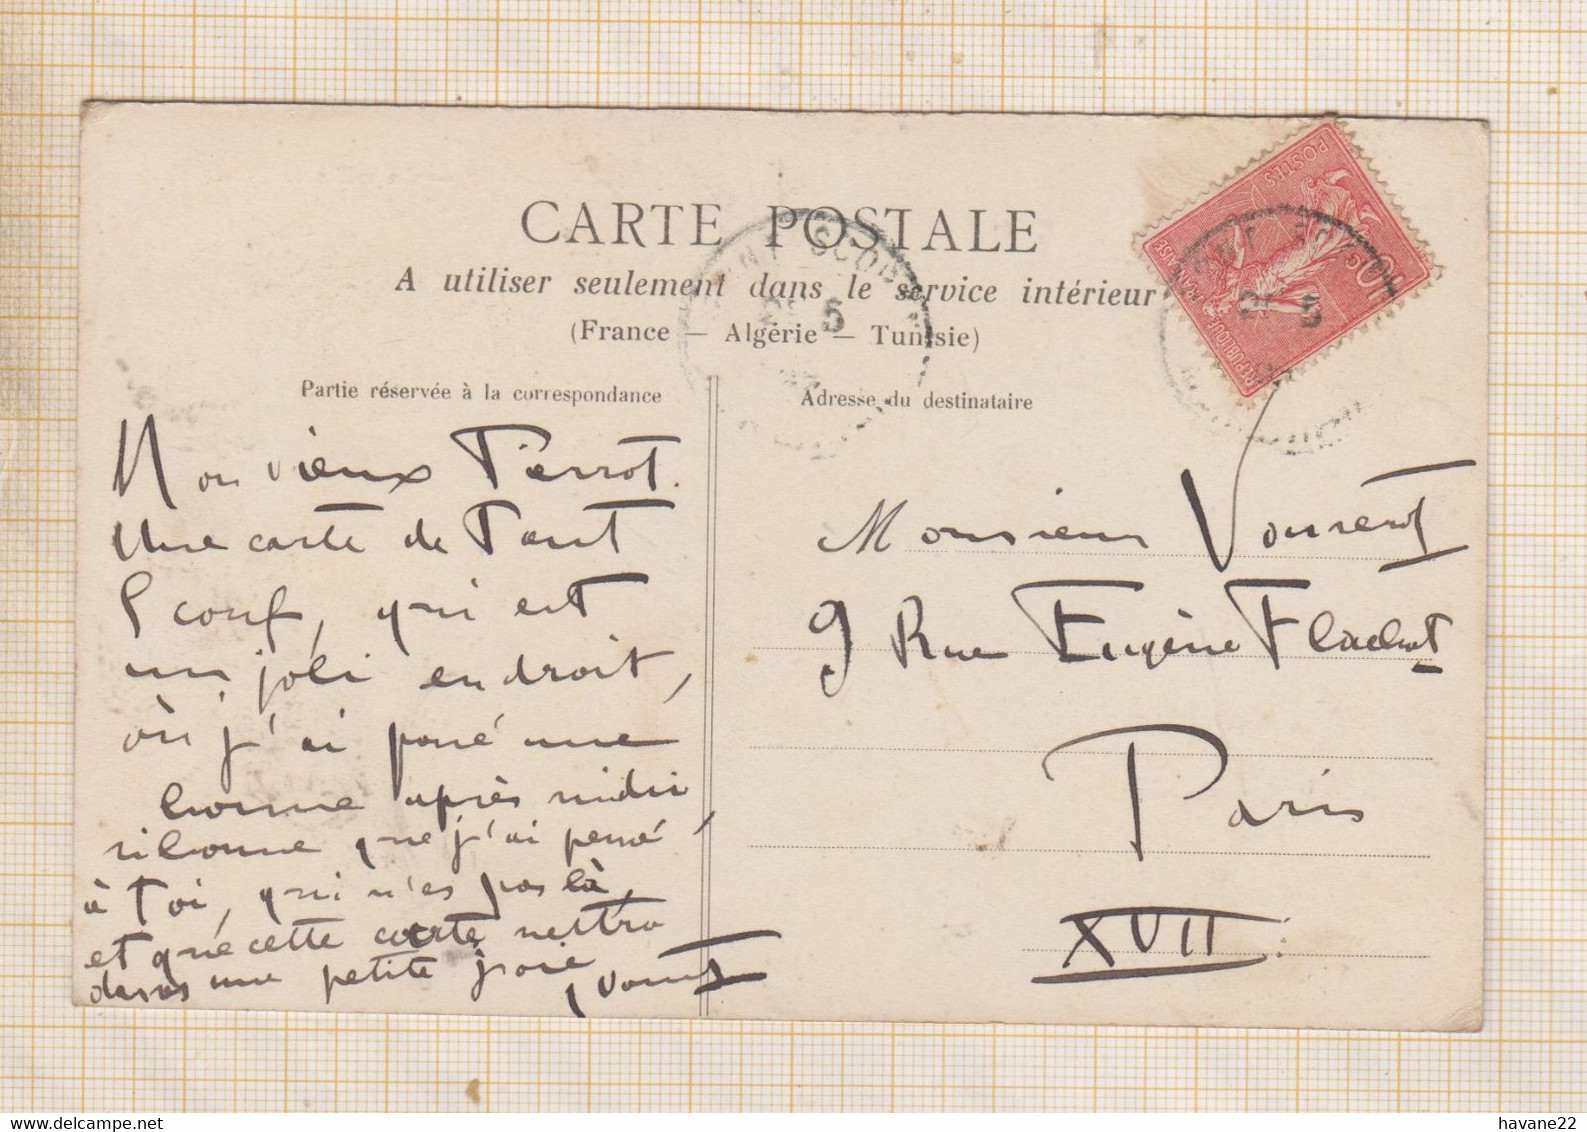 CARTE POSTALE
A utiliser seulement dans le service intérieur
(France — Algérie — Tunisie)
Partie réservée à la correspondance
Adresse du destinataire
Mon vieux Pierrot.
Une carte de Pont
Scorf, qui est
un joli endroit,
où j'ai passé une
bonne après midi
si bonne que j'ai pensé
à Toi, qui n'es pas là,
et que cette carte mettra
dans une petite joie
Monsieur
9 Rue Eugène Flachat
Paris
XVII
POSTES
10
REPUBLIQUE
www.delcampe.net
havane22